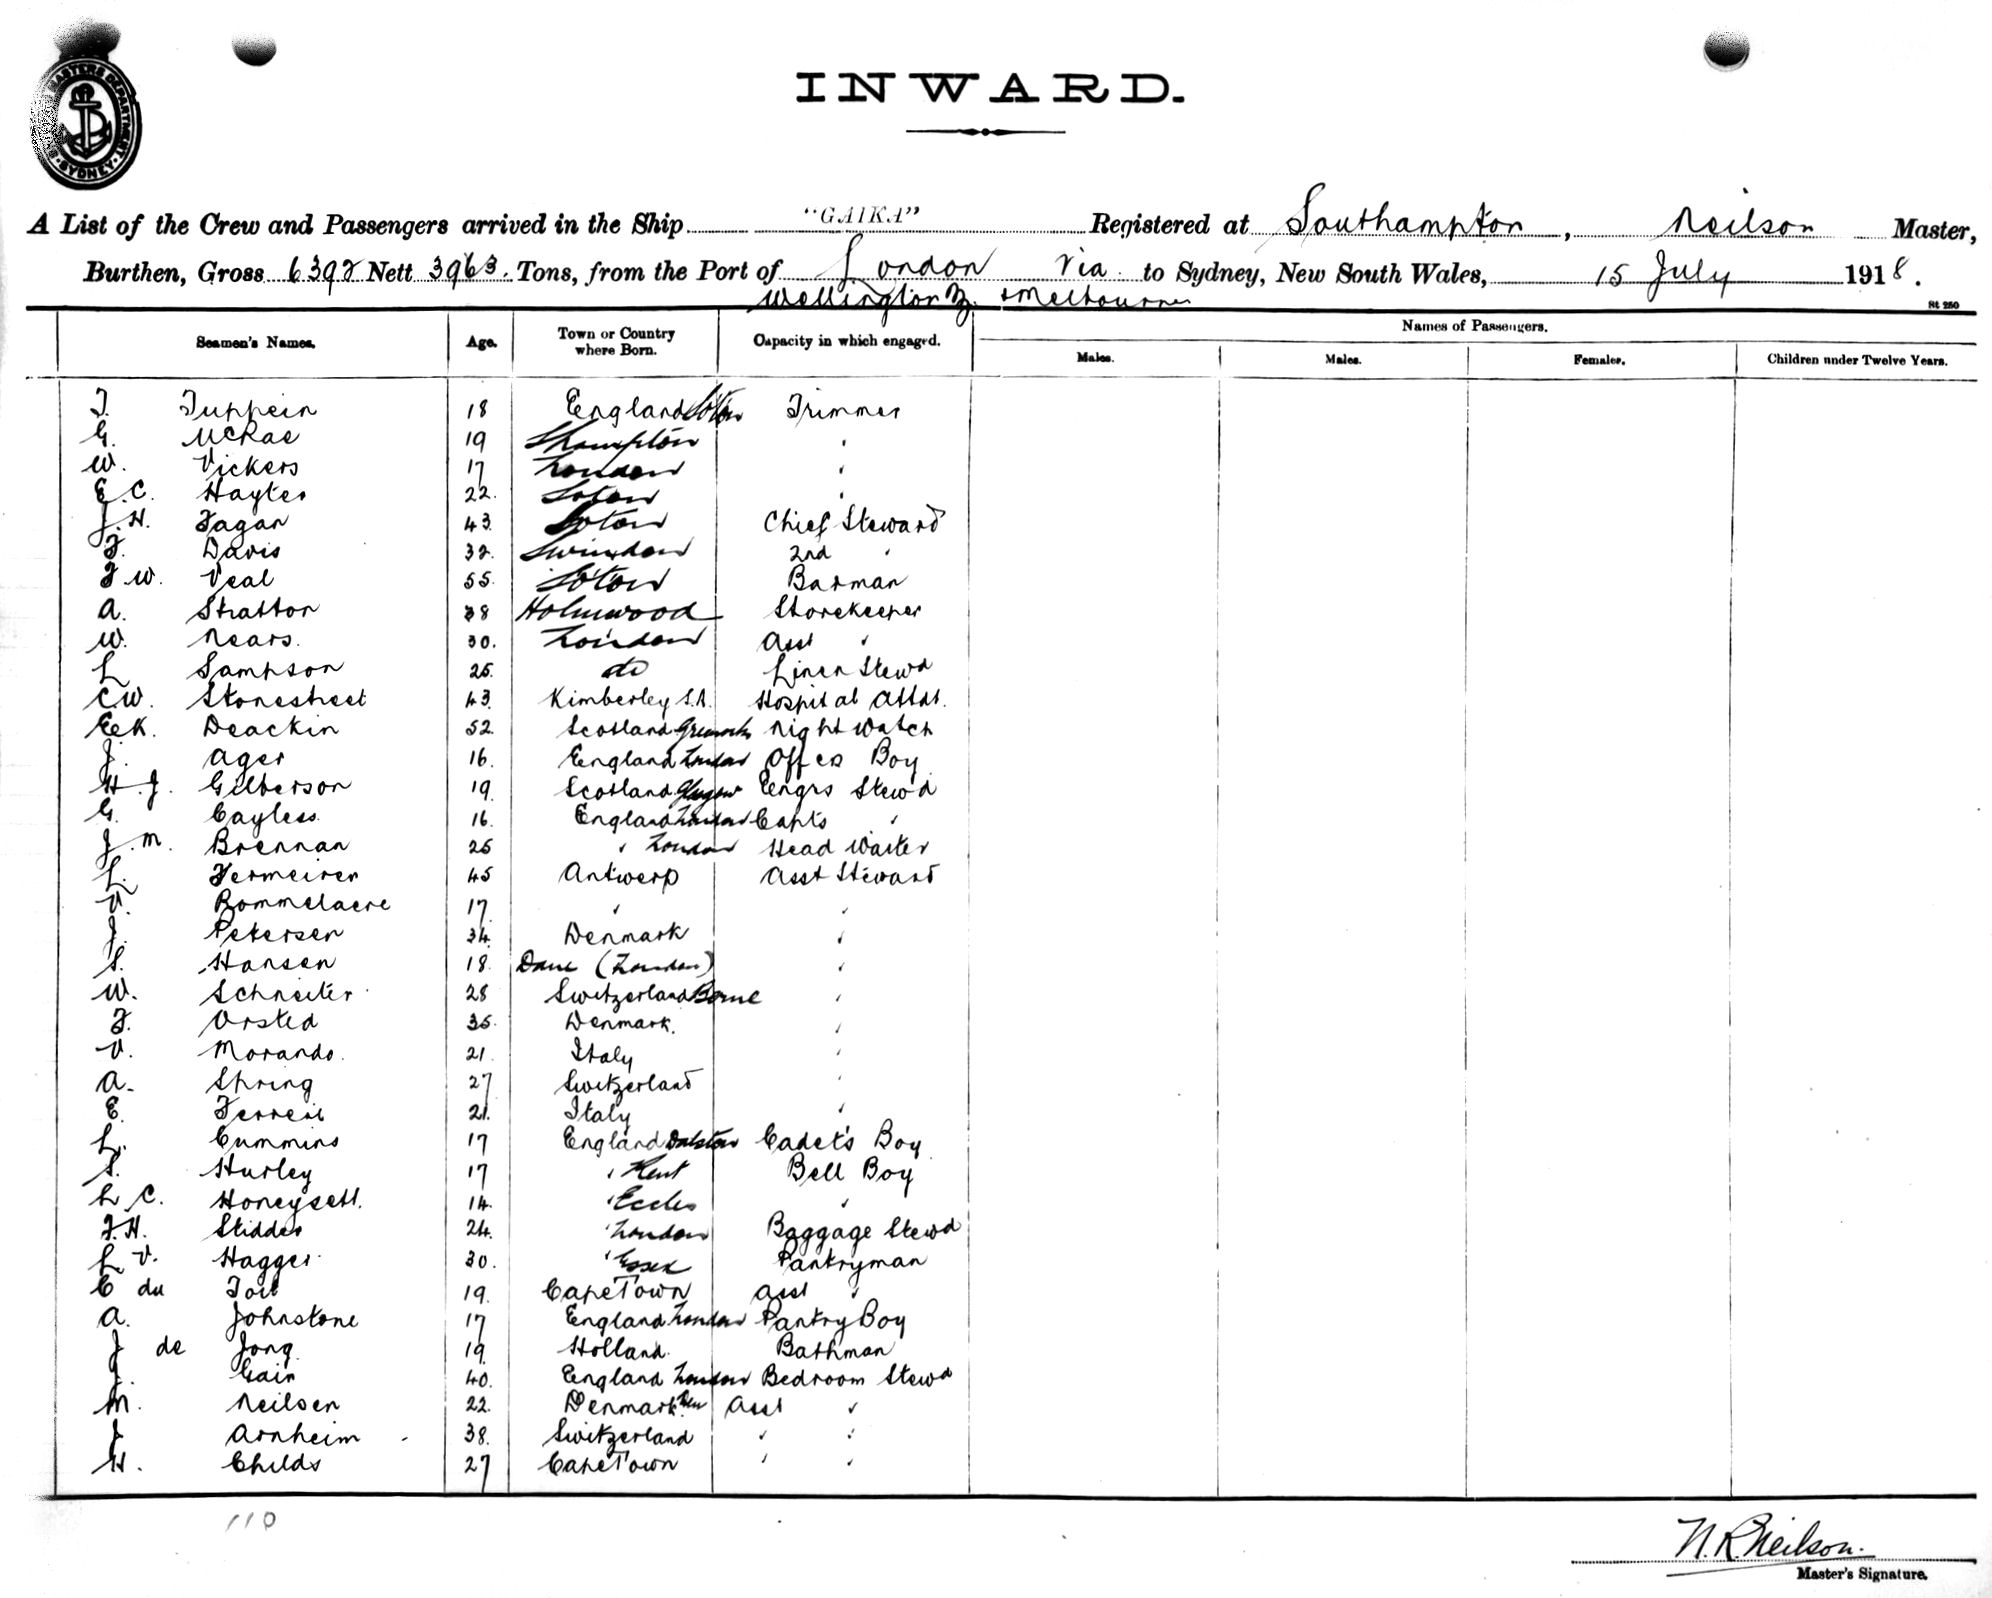 MASTERS DEPARTMENT SYDNEY
INWARD.
A List of the Crew and Passengers arrived in the Ship "GAIKA" Registered at Southampton, Neilson Master,
Burthen, Gross 6392 Nett 3963. Tons, from the Port of London Via to Sydney, New South Wales, 15 July 1918.
Wellington NZ. & Melbourne
St 250
Seamen's Names. Age. Town or Country where Born. Capacity in which engaged. Names of Passengers.
Males. Males. Females. Children under Twelve Years.
T. Tuppein 18 England Soton Trimmer
G. McRae 19 Shampton "
W. Vickers 17 London "
E.C. Hayter 22. Soton "
J.H. Fagan 43. Soton Chief Steward
F. Davis 32. Swindon 2nd "
F W. Veal 55. Soton Barman
A. Stratton 38 Holmwood Storekeeper
W. Nears. 30. London Asst "
L Sampson 25. do Linen Stewd
C W. Stonestreet 43. Kimberley S.A. Hospital Attdt.
E e K. Deackin 52. Scotland Greenock Night Watch
J. Ager 16. England London Offcrs Boy
H. J. Gilberson 19. Scotland Glasgow Eengrs Stew'd
G. Cayless. 16. England London Capts "
J. M. Brennan 25 " London Head Waiter
L. Vermeiren 45 Antwerp Asst Steward
V. Bommelaere 17. " "
J. Petersen 34. Denmark "
S. Hansen 18. Dane (London) "
W. Schneiter 28 Switzerland Berne "
F. Orsted 35. Denmark. "
V. Morando. 21. Italy "
A. Spring 27 Switzerland "
E. Ferreri 21. Italy "
L. Cummins 17 England Dalston Cadet's Boy
S. Hurley 17 " Kent Bell Boy
L C. Honeysett. 14. " Eccles "
F.H. Stidder 24. " London Baggage Stewd
L V. Hagger 30. " Essex Pantryman
C du Toit 19. Cape Town Asst "
A. Johnstone 17 England London Pantry Boy
J de Jong 19. Holland. Bathman
J. Gain 40. England London Bedroom Stewd
M. Neilsen 22. Denmark Asst "
J Arnheim 38. Switzerland " "
H. Childs 27 Cape Town " "
110
N.R. Neilson.
Master's Signature.